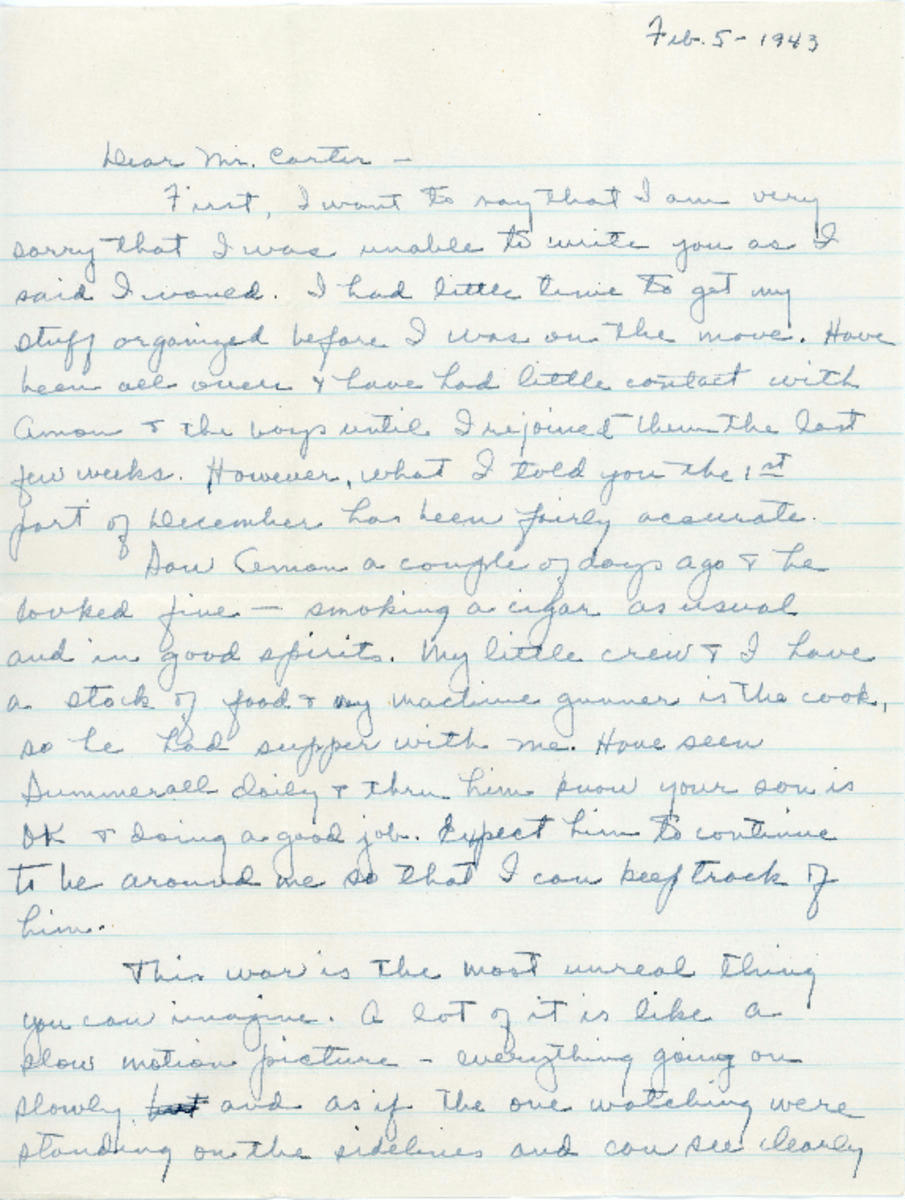 Feb. 5 - 1943
Dear Mr. Carter -
First, I want to say that I am very
sorry that I was unable to write you as I
said I would. I had little time to get my
stuff organized before I was on the move. Have
been all over & have had little contact with
Amon & the boys until I rejoined them the last
few weeks. However, what I told you the 1st
part of December has been fairly accurate.
Saw Amon a couple of days ago & he
looked fine - smoking a cigar as usual
and in good spirits. My little crew & I have
a stock of food & my machine gunner is the cook,
so he had supper with me. Have seen
Summerall daily & thru him know your son is
OK & doing a good job. Expect him to continue
to be around me so that I can keep track of
him.
This war is the most unreal thing
you can imagine. A lot of it is like a
slow motion picture - everything going on
slowly but and as if the one watching were
standing on the sidelines and can see clearly